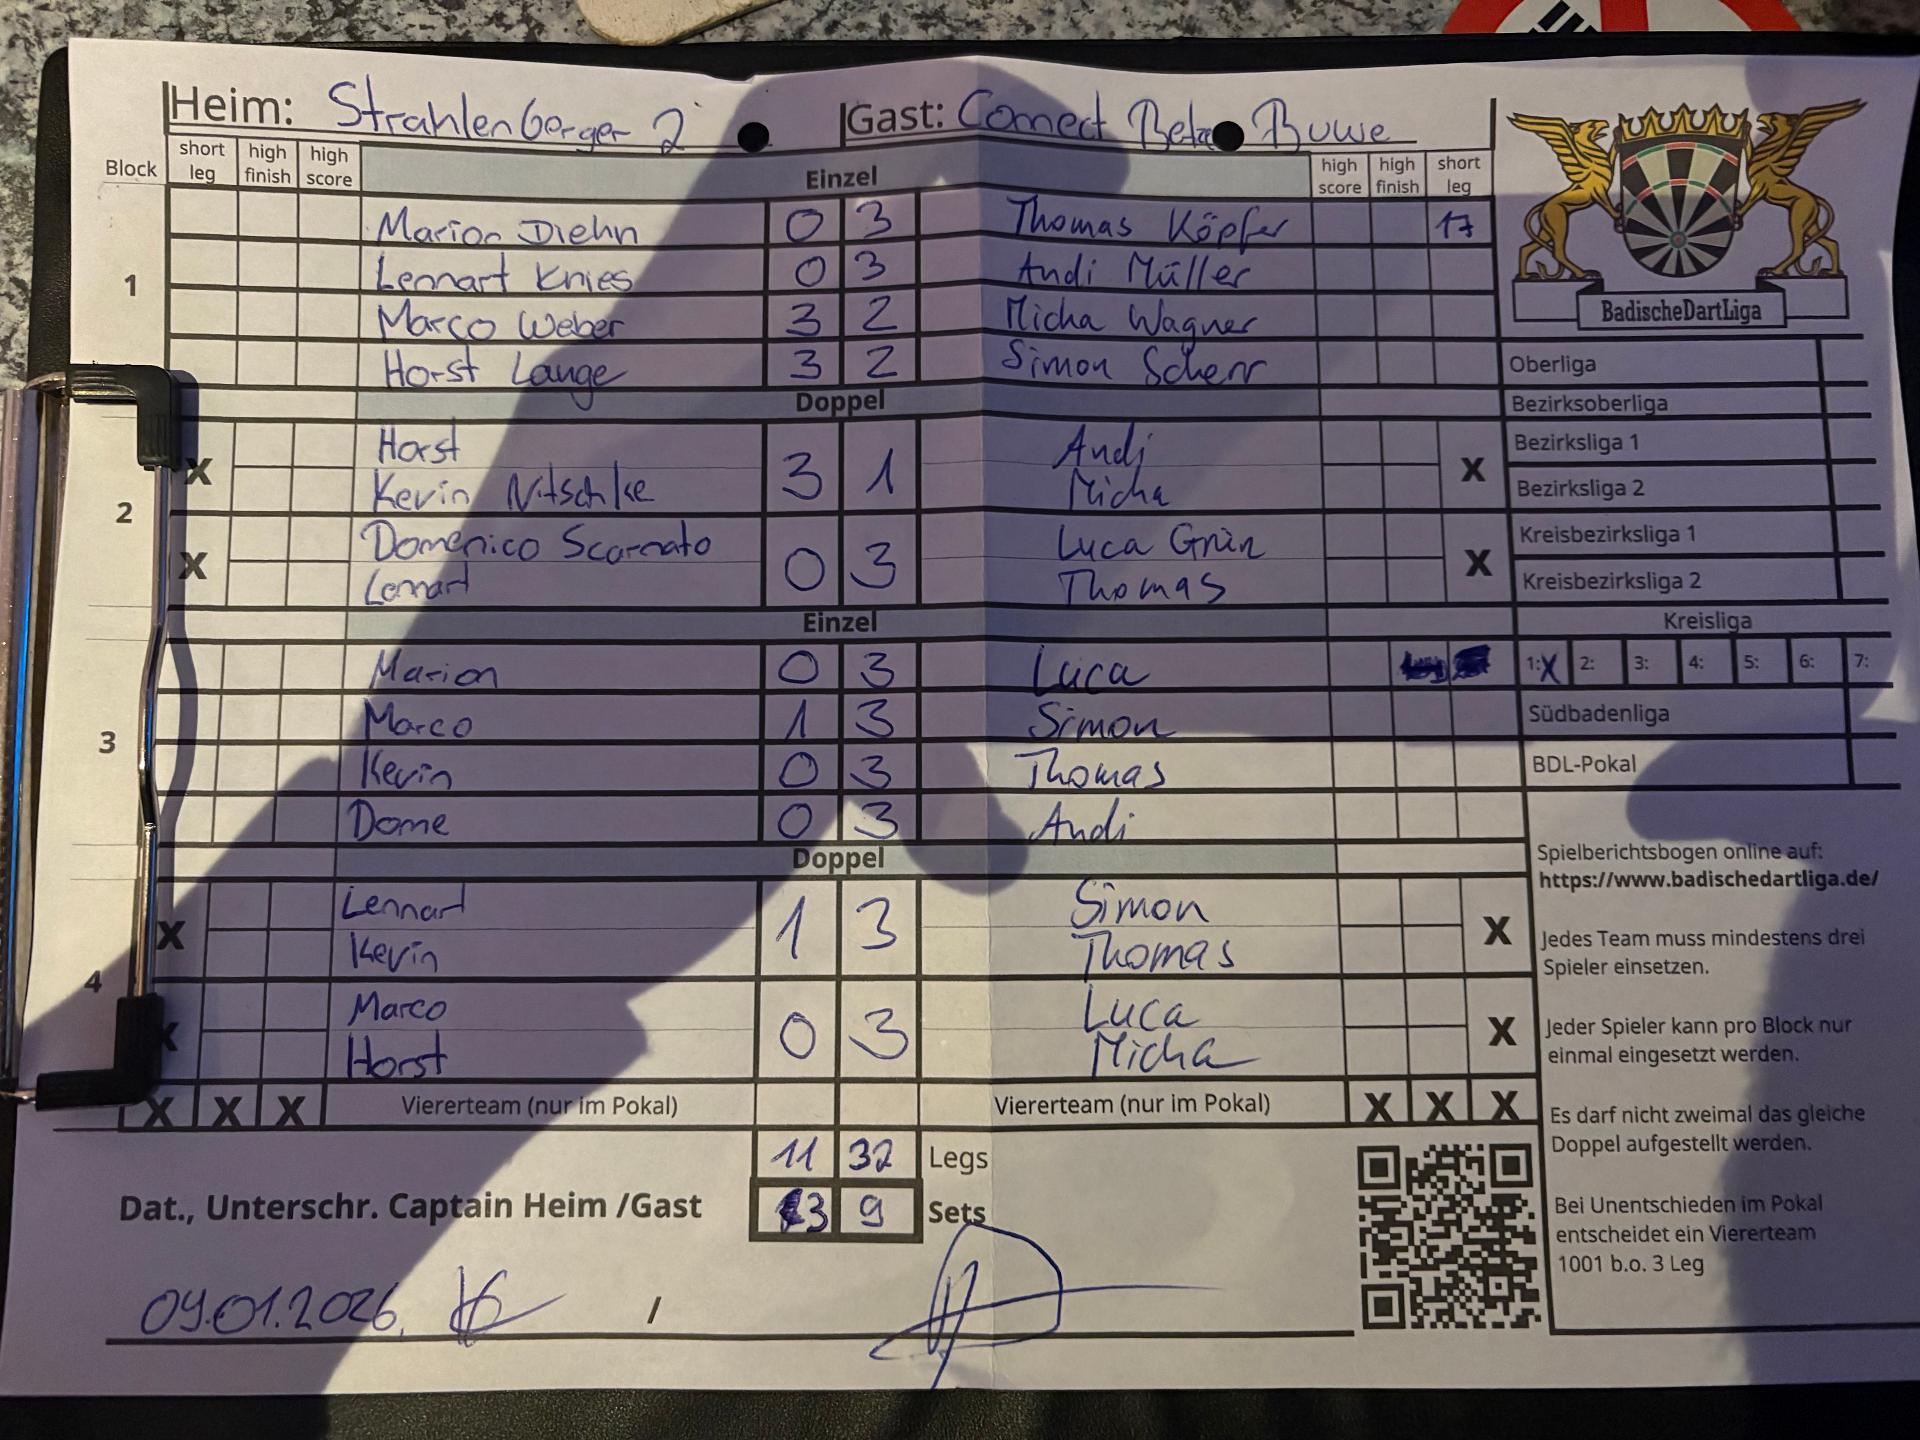 Heim: Strahlenberger 2 Gast: Comect Beta Buwe
Block short leg high finish high score Einzel high score high finish short leg
1
Marion Diehn 0 3 Thomas Köpfer 17
Lennart Knies 0 3 Andi Müller
Marco Weber 3 2 Micha Wagner
Horst Lange 3 2 Simon Scherr
Doppel
2
X Horst 3 1 Andi X
Kevin Nitschke Micha
X Domenico Scarnato 0 3 Luca Grün X
Lennart Thomas
Einzel
3
Marion 0 3 Luca
Marco 1 3 Simon
Kevin 0 3 Thomas
Dome 0 3 Andi
Doppel
4
X Lennart 1 3 Simon X
Kevin Thomas
X Marco 0 3 Luca X
Horst Micha
X X X Viererteam (nur im Pokal) Viererteam (nur im Pokal) X X X
11 32 Legs
Dat., Unterschr. Captain Heim /Gast 3 9 Sets
09.01.2026, /
BadischeDartLiga
Oberliga
Bezirksoberliga
Bezirksliga 1
Bezirksliga 2
Kreisbezirksliga 1
Kreisbezirksliga 2
Kreisliga
1: X 2: 3: 4: 5: 6: 7:
Südbadenliga
BDL-Pokal
Spielberichtsbogen online auf:
https://www.badischedartliga.de/
Jedes Team muss mindestens drei
Spieler einsetzen.
Jeder Spieler kann pro Block nur
einmal eingesetzt werden.
Es darf nicht zweimal das gleiche
Doppel aufgestellt werden.
Bei Unentschieden im Pokal
entscheidet ein Viererteam
1001 b.o. 3 Leg